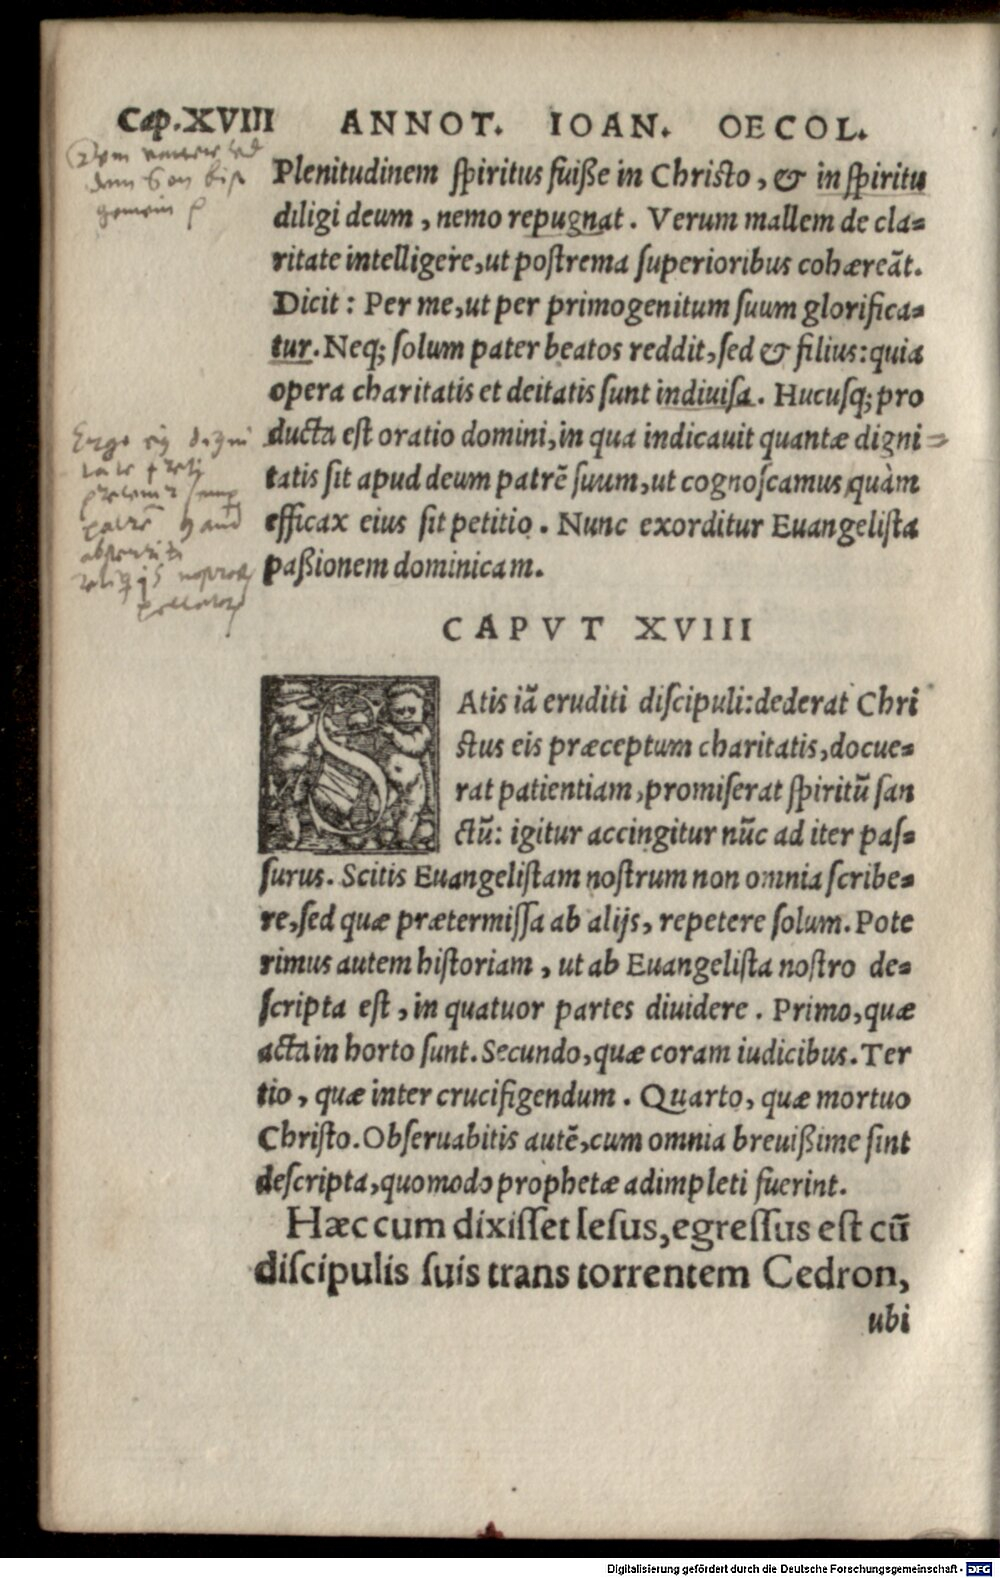 Cap.XVIII ANNOT. IOAN. OECOL.
Plenitudinem ſpiritus fuiße in Chriſto, & in ſpiritu
diligi deum, nemo repugnat. Verum mallem de cla-
ritate intelligere, ut poſtrema ſuperioribus cohæreãt.
Dicit: Per me, ut per primogenitum ſuum glorifica-
tur. Neq; ſolum pater beatos reddit, ſed & filius: quia
opera charitatis et deitatis ſunt indiuiſa. Hucuſq; pro
ducta eſt oratio domini, in qua indicauit quantæ digni
tatis ſit apud deum patrẽ ſuum, ut cognoſcamus quàm
efficax eius ſit petitio. Nunc exorditur Euangeliſta
paßionem dominicam.
CAPVT XVIII
SAtis iã eruditi diſcipuli: dederat Chri
ſtus eis præceptum charitatis, docue-
rat patientiam, promiſerat ſpiritũ ſan
ctũ: igitur accingitur nũc ad iter paſ-
ſurus. Scitis Euangeliſtam noſtrum non omnia ſcribe-
re, ſed quæ prætermiſſa ab alijs, repetere ſolum. Pote
rimus autem hiſtoriam, ut ab Euangeliſta noſtro de-
ſcripta eſt, in quatuor partes diuidere. Primo, quæ
acta in horto ſunt. Secundo, quæ coram iudicibus. Ter
tio, quæ inter crucifigendum. Quarto, quæ mortuo
Chriſto. Obſeruabitis autẽ, cum omnia breuißime ſint
deſcripta, quomodo prophetæ adimpleti fuerint.
Hæc cum dixiſſet Ieſus, egreſſus eſt cũ
diſcipulis ſuis trans torrentem Cedron,
ubi
Digitalisierung gefördert durch die Deutsche Forschungsgemeinschaft - DFG